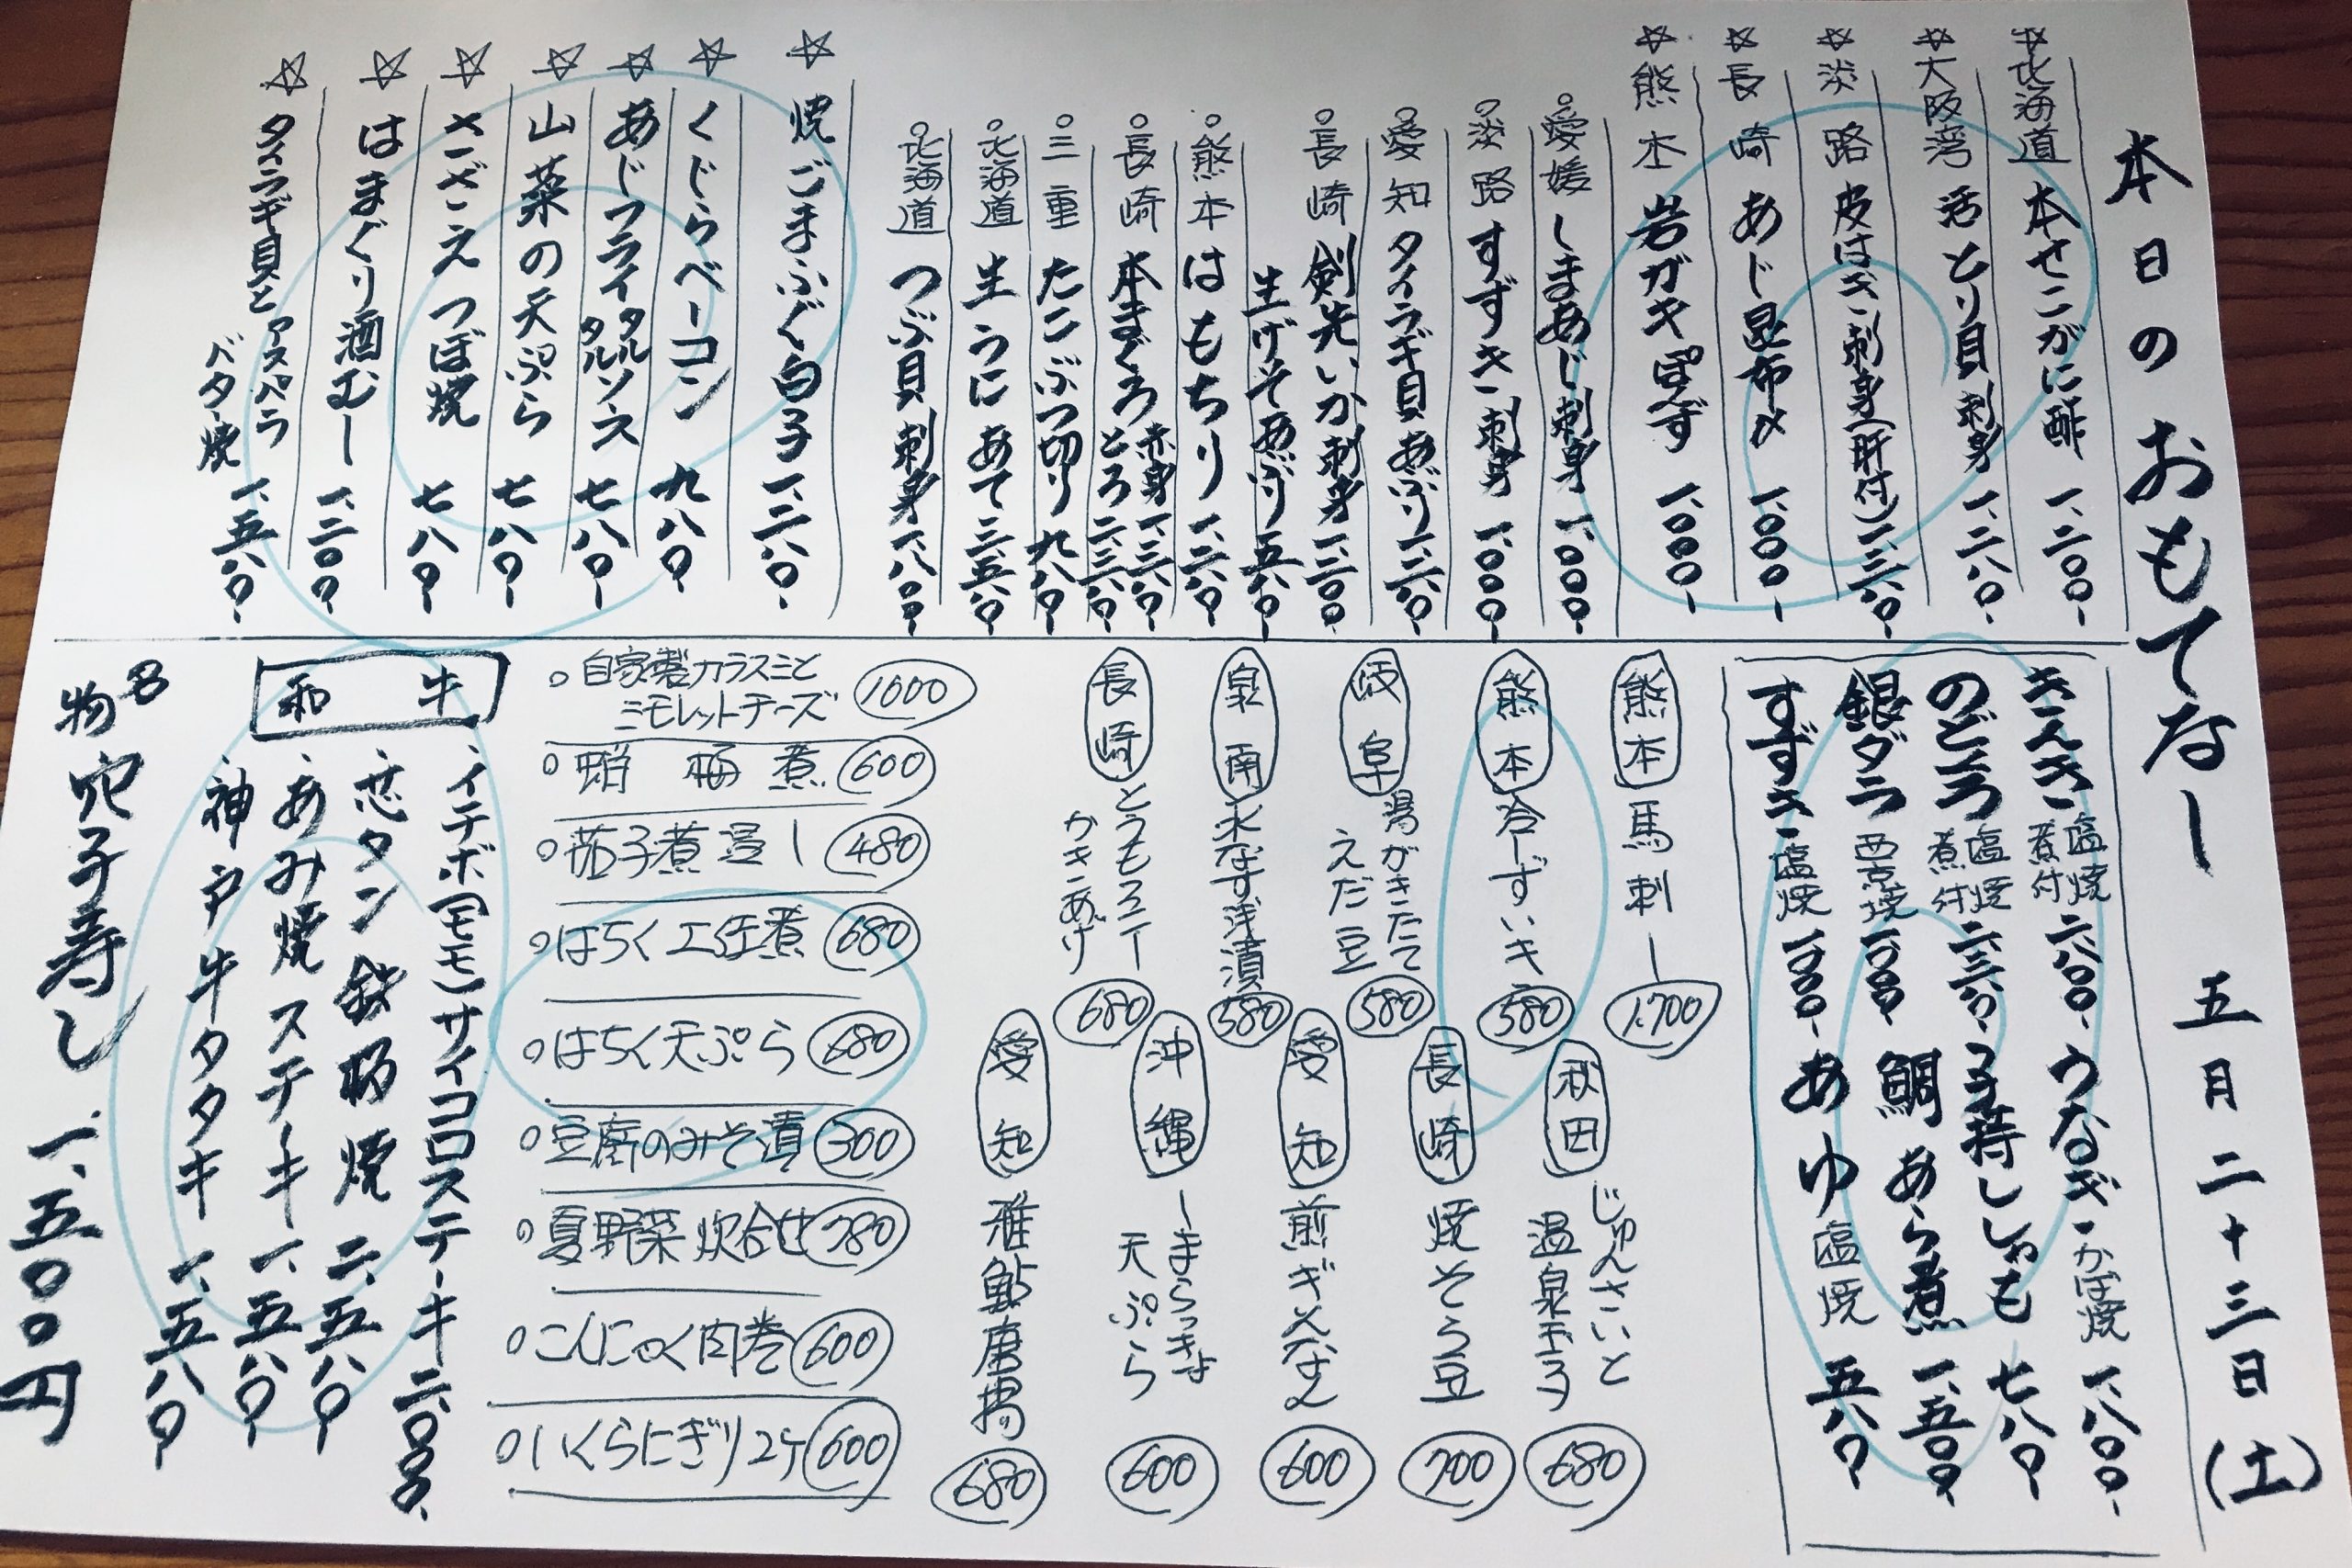 本日のおもてなし 五月二十三日(土)
☆北海道 本せこがに酢 一、二〇〇
☆大阪湾 活とり貝刺身 一、二八〇
☆淡路 皮はぎ刺身(肝付)
☆長崎 あじ昆布〆 一、〇〇〇
☆熊本 岩ガキぽんず 一、〇〇〇
○愛媛 しまあじ刺身 一、〇〇〇
○淡路 すずき刺身 一、〇〇〇
○愛知 タイラギ貝あぶり
○長崎 剣先いか刺身
生げそあぶり 五八〇
○熊本 はもちり
○長崎 本まぐろ 赤身
とろ
○三重 たこぶつ切り 九八〇
○北海道 生うにあて
○北海道 つぶ貝刺身 一、八〇〇
☆焼ごまふぐ白子
☆くじらベーコン 九八〇
☆あじフライ タルタルソース 七八〇
☆山菜の天ぷら 七八〇
☆さざえつぼ焼 七八〇
☆はまぐり酒むし 一、二〇〇
☆タイラギ貝とアスパラ
バター焼 一、五八〇
きんき 塩焼 煮付 二、八〇〇 うなぎ かば焼 一、八〇〇
のどぐろ 塩焼 煮付 子持ししゃも 七八〇
銀ダラ 西京焼 鯛あら煮 一、五〇〇
すずき 塩焼 あゆ 塩焼 五八〇
熊本 馬刺し 1.700
熊本 冷しずいき 580
岐阜 湯がきたて
えだ豆 580
泉南 水なす浅漬 580
長崎 とうもろこし
かきあげ 680
秋田 じゅんさいと
温泉玉子 680
長崎 焼そら豆 700
愛知 煎ぎんなん 600
沖縄 しまらっきょ
天ぷら 600
愛知 稚鮎唐揚 680
○自家製カラスミと
ミモレットチーズ 1000
○蛸梅煮 600
○茄子煮浸し 480
○はちく土佐煮 680
○はちく天ぷら 680
○豆腐のみそ漬 300
○夏野菜炊合せ 780
○こんにゃく肉巻 600
○いくらにぎり2ケ 600
和牛
・イチボ(モモ)サイコロステーキ 二、〇〇〇
・芯タン鉄板焼 二、五八〇
・あみ焼ステーキ 一、五八〇
・神戸牛タタキ 一、五八〇
名物 穴子寿し 一、五〇〇円